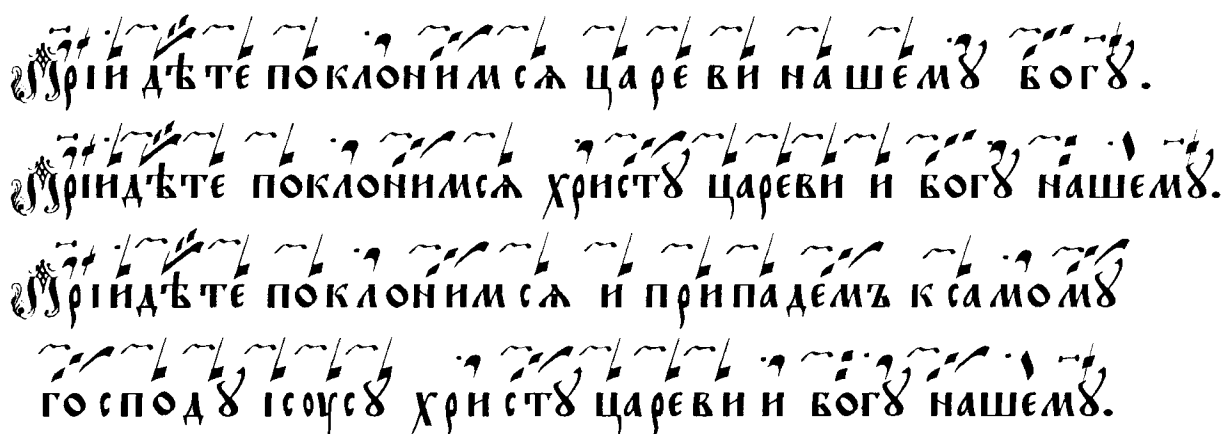 Прїидѣте поклонимсѧ цареви нашемꙋ богꙋ.
Прїидѣте поклонимсѧ христꙋ цареви и богꙋ нашемꙋ.
Прїидѣте поклонимсѧ и припадемъ к самомꙋ
господꙋ ісоусꙋ христꙋ цареви и богꙋ нашемꙋ.